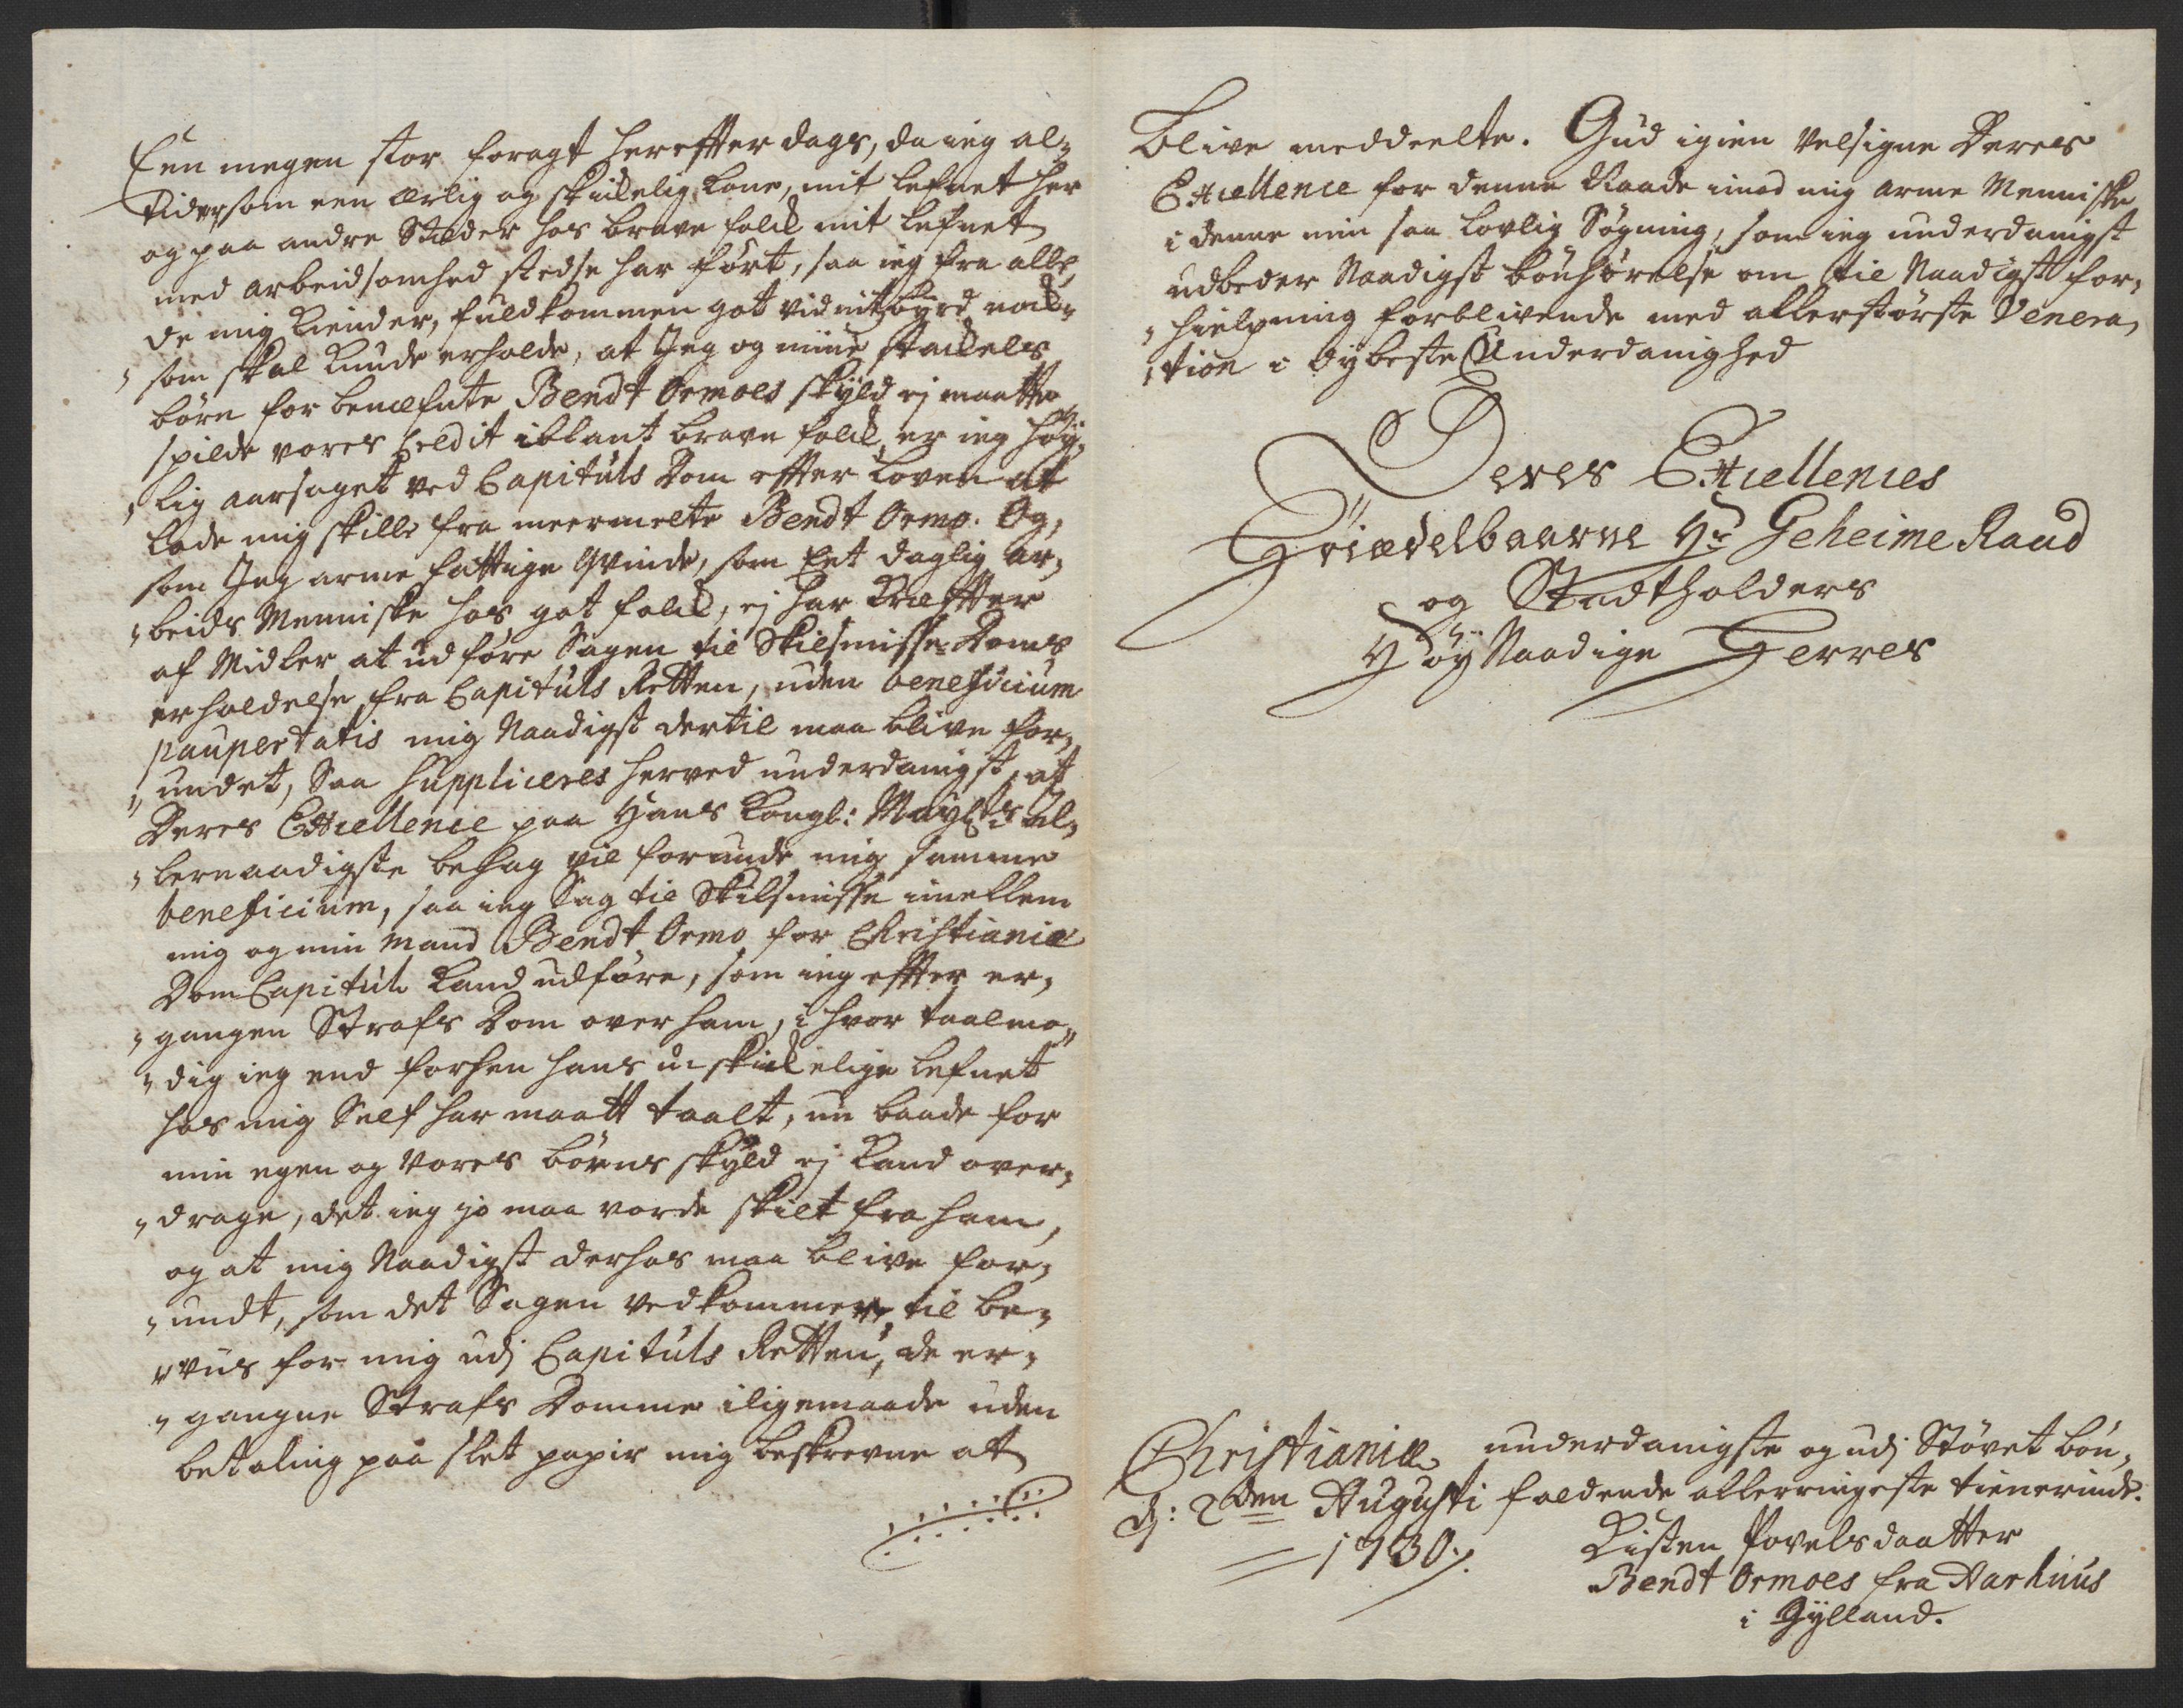 Een megen stor foragt hereffter dags, da ieg al-
tider som een ærlig og skickelig Kone, mit lefnet her
og paa andre Stæder hos brave folck mit lefnet
med arbeidsomhed stedse har ført, saa ieg fra alle
de mig Kiender, fuldkommen got vidnitzbyrd
som skal Kunde erholde, at Jeg og mine stackels
børn for benæfnte Bendt Ormoes skyld ej maatte
spilde vores Credit iblant brave folck er ieg høy-
lig aarsaget ved Capituls Dom effter Loven at
lade mig skille fra meermelte Bendt Ormo. Og,
som Jeg arme fattige Qvinde, som Eet daglig ar-
beids Menniske hos got folck, ej har Kræffter
af Midler at udføre Sagen til Skilsmisse Doms
erholdelse fra Capituls Retten, uden beneficium
paupertatis mig Naadigst dertil maa blive for-
undet, Saa suppliceres herved underdanigst, at
Deres Excellence paa Hans Kongl: Mayts al-
lernaadigste behag vil forunde mig samme
beneficium, saa ieg Sag til Skilsmisse imellem
mig og min Mand Bendt Ormo for Christiania
Dom Capitul Kand udføre, som ieg effter er-
gangen Strafs Dom over ham, i hvor taalmo-
dig ieg end forhen hans uskickelige lefnet
hos mig Self har maatt taalt, nu baade for
min egen og vores børns skyld ej Kand over-
drage, det ieg jo maa vorde skilt fra ham,
og at mig Naadigst derhos maa blive for-
undt, som det Sagen vedkommer, til be-
viis for mig udj Capituls Retten, de er-
gangne Strafs Domme iligemaade uden
betaling paa slet papir mig beskrevne at
blive meddeelte. Gud igien velsigne Deres
Excellence for denne Naade imod mig arme Menniske
i denne min saa lovlig Søgning, som ieg underdanigst
udbeder Naadigst bønhørelse om til Naadigst for-
hielpning forblivende med allerstørste Venera-
tion i dybeste Underdanighed
Deres Excellences
Høiædelbaarne Hr Geheime Raad
og Stadtholders
Høy Naadige Herres
Christiania
d: 2den Augusti
1730.
underdanigste og udj Støvet bøn-
faldende allerringeste tienerinde.
Kisten Povelsdaatter
Bendt Ormoes fra Aarhuus
i Jylland.